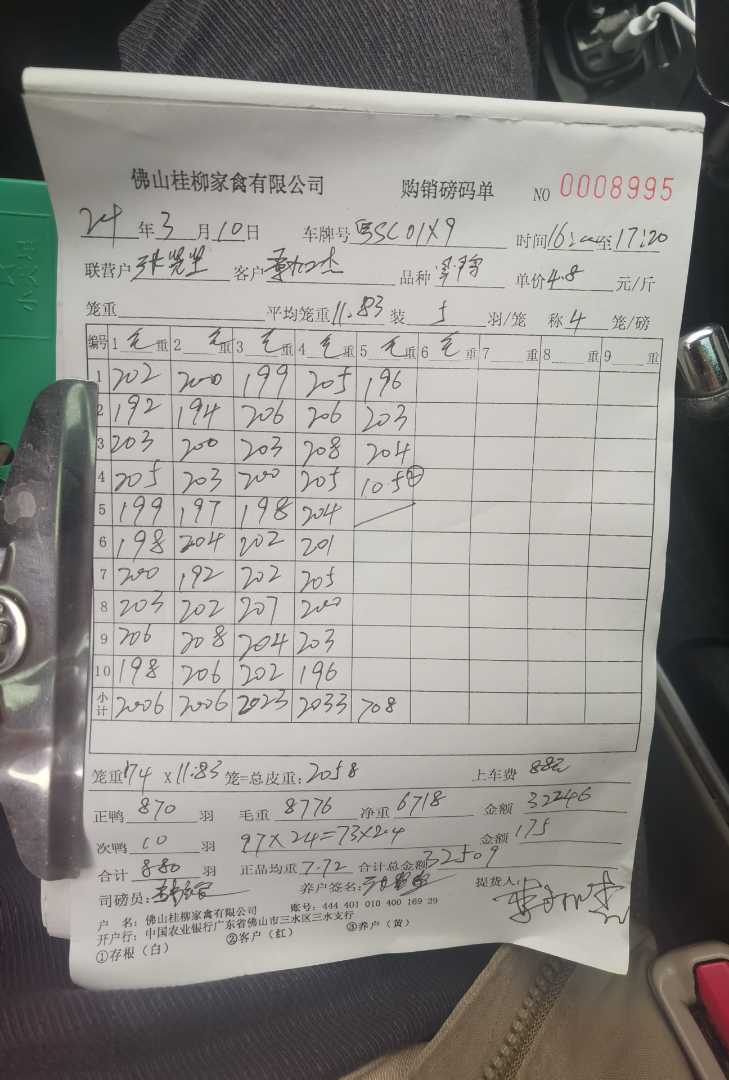 佛山桂柳家禽有限公司 购销磅码单 NO 0008995
24年3月10日 车牌号 SC01X9 时间16:00至17:20
联营户 张先生 客户 杰 品种 单价4.8元/斤
笼重 平均笼重11.83 装5羽/笼 称4笼/磅
编号 1毛重 2毛重 3毛重 4毛重 5毛重 6毛重 7重 8重 9重
1 202 200 199 205 196
2 192 194 206 206 203
3 203 200 203 208 204
4 205 203 200 205 105②
5 199 197 198 204
6 198 204 202 201
7 200 192 202 205
8 203 202 207 200
9 206 208 204 203
10 198 206 202 196
小计 2006 2006 2023 2033 708
笼重174X11.83笼=总皮重:2058 上车费 88元
正鸭870羽 毛重8776 净重6718 金额32246
次鸭10羽 97X24=73X2.4 金额175
合计880羽 正品均重7.72 合计总金额32509
司磅员: 养户签名: 提货人:
户 名:佛山桂柳家禽有限公司 账号:444 401 010 400 169 29
开户行:中国农业银行广东省佛山市三水区三水支行
①存根(白) ②客户(红) ③养户(黄)